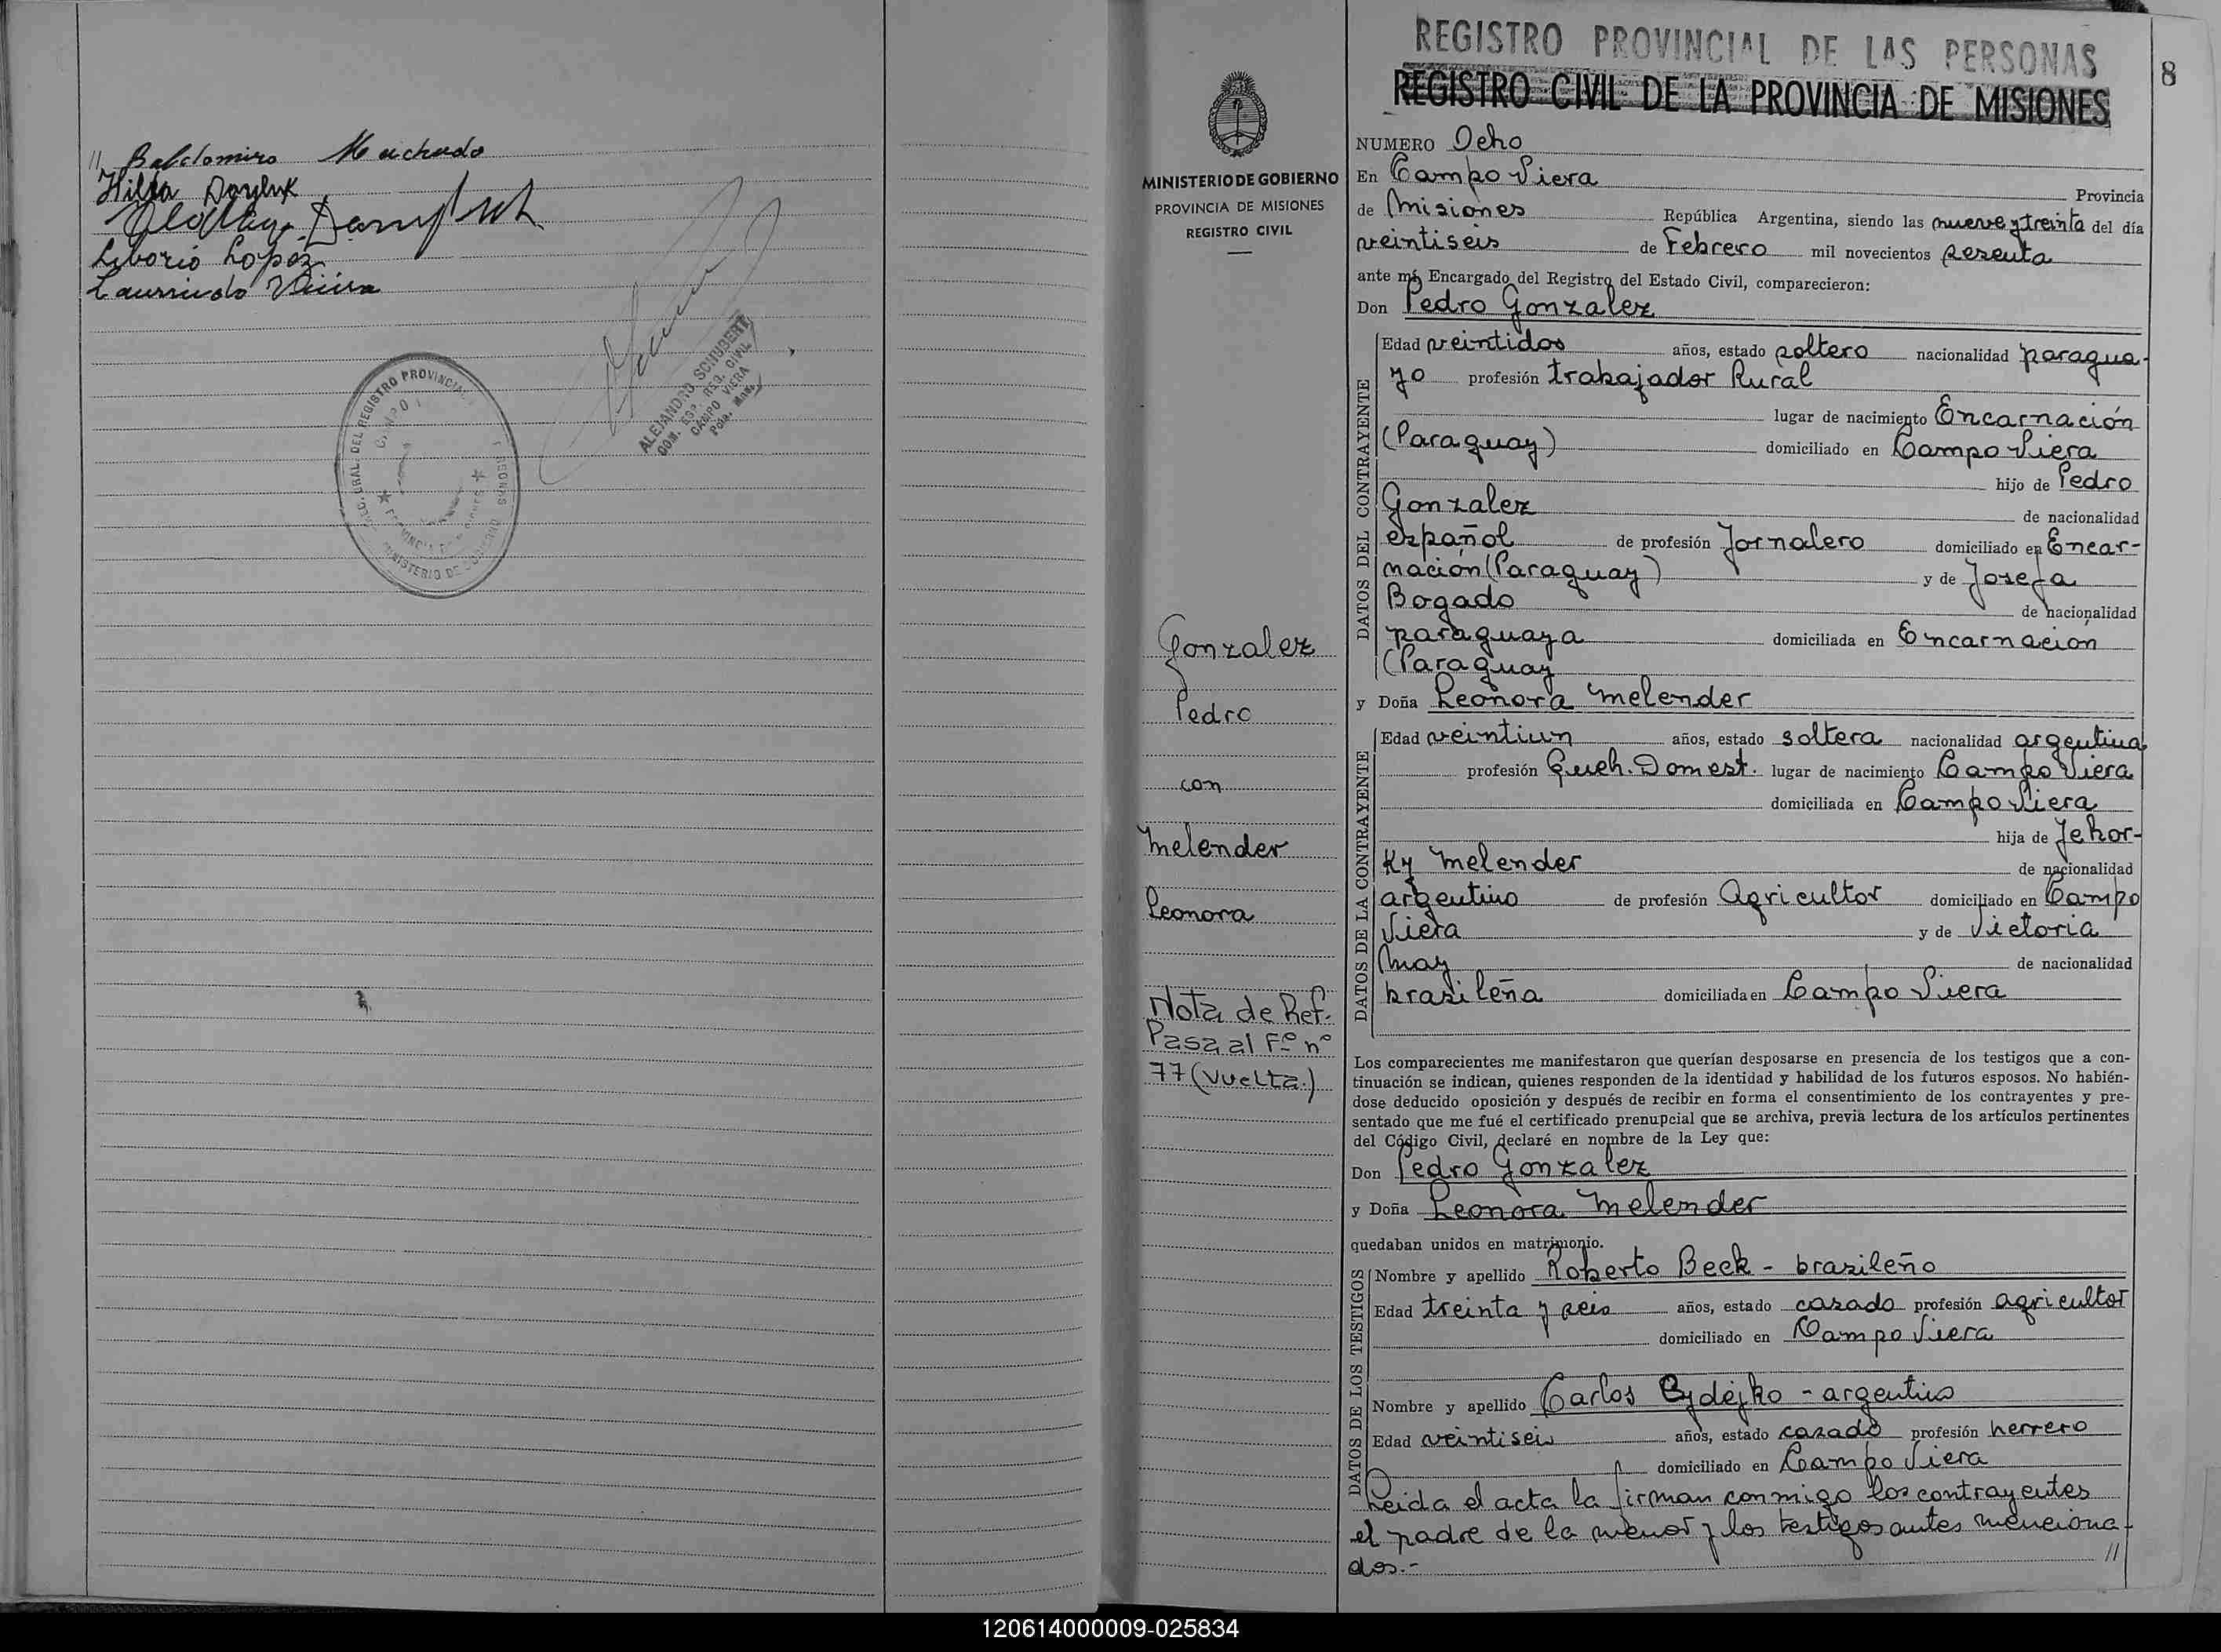 // Baldomiro Machado
Hilda
Liborio Lopez
Laurindo Vieira
DIREC. GRAL. DEL REGISTRO PROVINCIAL
MINISTERIO DE GOBIERNO
ALEJANDRO SCHUBERT
COM. ESP. REG. CIVIL
CAMPO VIERA
Pcia. Mnes.
MINISTERIO DE GOBIERNO
PROVINCIA DE MISIONES
REGISTRO CIVIL
Gonzalez
Pedro
con
Melender
Leonora
Nota de Ref.
Pasa al Fº nº
77 (Vuelta.)
REGISTRO PROVINCIAL DE LAS PERSONAS
8
REGISTRO CIVIL DE LA PROVINCIA DE MISIONES
NUMERO Ocho
En Campo Viera Provincia
de Misiones República Argentina, siendo las nueve y treinta del día
veintiseis de Febrero mil novecientos sesenta
ante mí, Encargado del Registro del Estado Civil, comparecieron:
Don Pedro Gonzalez
DATOS DEL CONTRAYENTE
Edad veintidos años, estado soltero nacionalidad paragua-
yo profesión trabajador Rural
lugar de nacimiento Encarnación
(Paraguay) domiciliado en Campo Viera
hijo de Pedro
Gonzalez de nacionalidad
español de profesión Jornalero domiciliado en Encar-
nación (Paraguay) y de Josefa
Bogado de nacionalidad
paraguaya domiciliada en Encarnacion
(Paraguay
y Doña Leonora Melender
DATOS DE LA CONTRAYENTE
Edad veintiun años, estado soltera nacionalidad argentina
profesión Queh. Domest. lugar de nacimiento Campo Viera
domiciliada en Campo Viera
hija de Jehor-
Ky Melender de nacionalidad
argentino de profesión Agricultor domiciliado en Campo
Viera y de Victoria
May de nacionalidad
brasileña domiciliada en Campo Viera
Los comparecientes me manifestaron que querían desposarse en presencia de los testigos que a con-
tinuación se indican, quienes responden de la identidad y habilidad de los futuros esposos. No habién-
dose deducido oposición y después de recibir en forma el consentimiento de los contrayentes y pre-
sentado que me fué el certificado prenupcial que se archiva, previa lectura de los artículos pertinentes
del Código Civil, declaré en nombre de la Ley que:
Don Pedro Gonzalez
y Doña Leonora Melender
quedaban unidos en matrimonio.
DATOS DE LOS TESTIGOS
Nombre y apellido Roberto Beck - brazileño
Edad treinta y seis años, estado casado profesión agricultor
domiciliado en Campo Viera
Nombre y apellido Carlos - argentino
Edad veintiseis años, estado casado profesión herrero
domiciliado en Campo Viera
Leida el acta la firman conmigo los contrayentes
el padre de la menor y los testigos antes menciona-
dos.- //
120614000009-025834